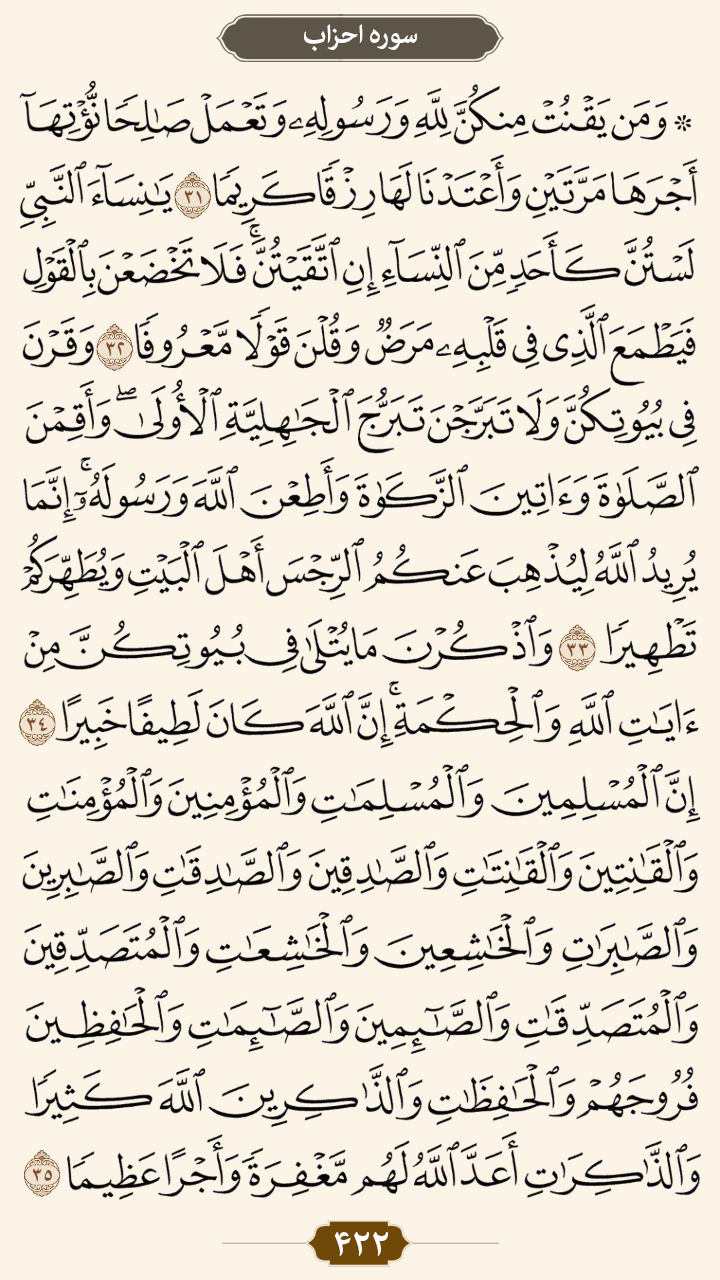 سوره احزاب
۞ وَمَن يَقْنُتْ مِنكُنَّ لِلَّهِ وَرَسُولِهِۦ وَتَعْمَلْ صَـٰلِحًا نُّؤْتِهَآ
أَجْرَهَا مَرَّتَيْنِ وَأَعْتَدْنَا لَهَا رِزْقًا كَرِيمًا ٣١ يَـٰنِسَآءَ ٱلنَّبِيِّ
لَسْتُنَّ كَأَحَدٍ مِّنَ ٱلنِّسَآءِ إِنِ ٱتَّقَيْتُنَّ ۚ فَلَا تَخْضَعْنَ بِٱلْقَوْلِ
فَيَطْمَعَ ٱلَّذِى فِى قَلْبِهِۦ مَرَضٌ وَقُلْنَ قَوْلًا مَّعْرُوفًا ٣٢ وَقَرْنَ
فِى بُيُوتِكُنَّ وَلَا تَبَرَّجْنَ تَبَرُّجَ ٱلْجَـٰهِلِيَّةِ ٱلْأُولَىٰ ۖ وَأَقِمْنَ
ٱلصَّلَوٰةَ وَءَاتِينَ ٱلزَّكَوٰةَ وَأَطِعْنَ ٱللَّهَ وَرَسُولَهُۥٓ ۚ إِنَّمَا
يُرِيدُ ٱللَّهُ لِيُذْهِبَ عَنكُمُ ٱلرِّجْسَ أَهْلَ ٱلْبَيْتِ وَيُطَهِّرَكُمْ
تَطْهِيرًا ٣٣ وَٱذْكُرْنَ مَا يُتْلَىٰ فِى بُيُوتِكُنَّ مِنْ
ءَايَـٰتِ ٱللَّهِ وَٱلْحِكْمَةِ ۚ إِنَّ ٱللَّهَ كَانَ لَطِيفًا خَبِيرًا ٣٤
إِنَّ ٱلْمُسْلِمِينَ وَٱلْمُسْلِمَـٰتِ وَٱلْمُؤْمِنِينَ وَٱلْمُؤْمِنَـٰتِ
وَٱلْقَـٰنِتِينَ وَٱلْقَـٰنِتَـٰتِ وَٱلصَّـٰدِقِينَ وَٱلصَّـٰدِقَـٰتِ وَٱلصَّـٰبِرِينَ
وَٱلصَّـٰبِرَٰتِ وَٱلْخَـٰشِعِينَ وَٱلْخَـٰشِعَـٰتِ وَٱلْمُتَصَدِّقِينَ
وَٱلْمُتَصَدِّقَـٰتِ وَٱلصَّـٰٓئِمِينَ وَٱلصَّـٰٓئِمَـٰتِ وَٱلْحَـٰفِظِينَ
فُرُوجَهُمْ وَٱلْحَـٰفِظَـٰتِ وَٱلذَّٰكِرِينَ ٱللَّهَ كَثِيرًا
وَٱلذَّٰكِرَٰتِ أَعَدَّ ٱللَّهُ لَهُم مَّغْفِرَةً وَأَجْرًا عَظِيمًا ٣٥
۴۲۲